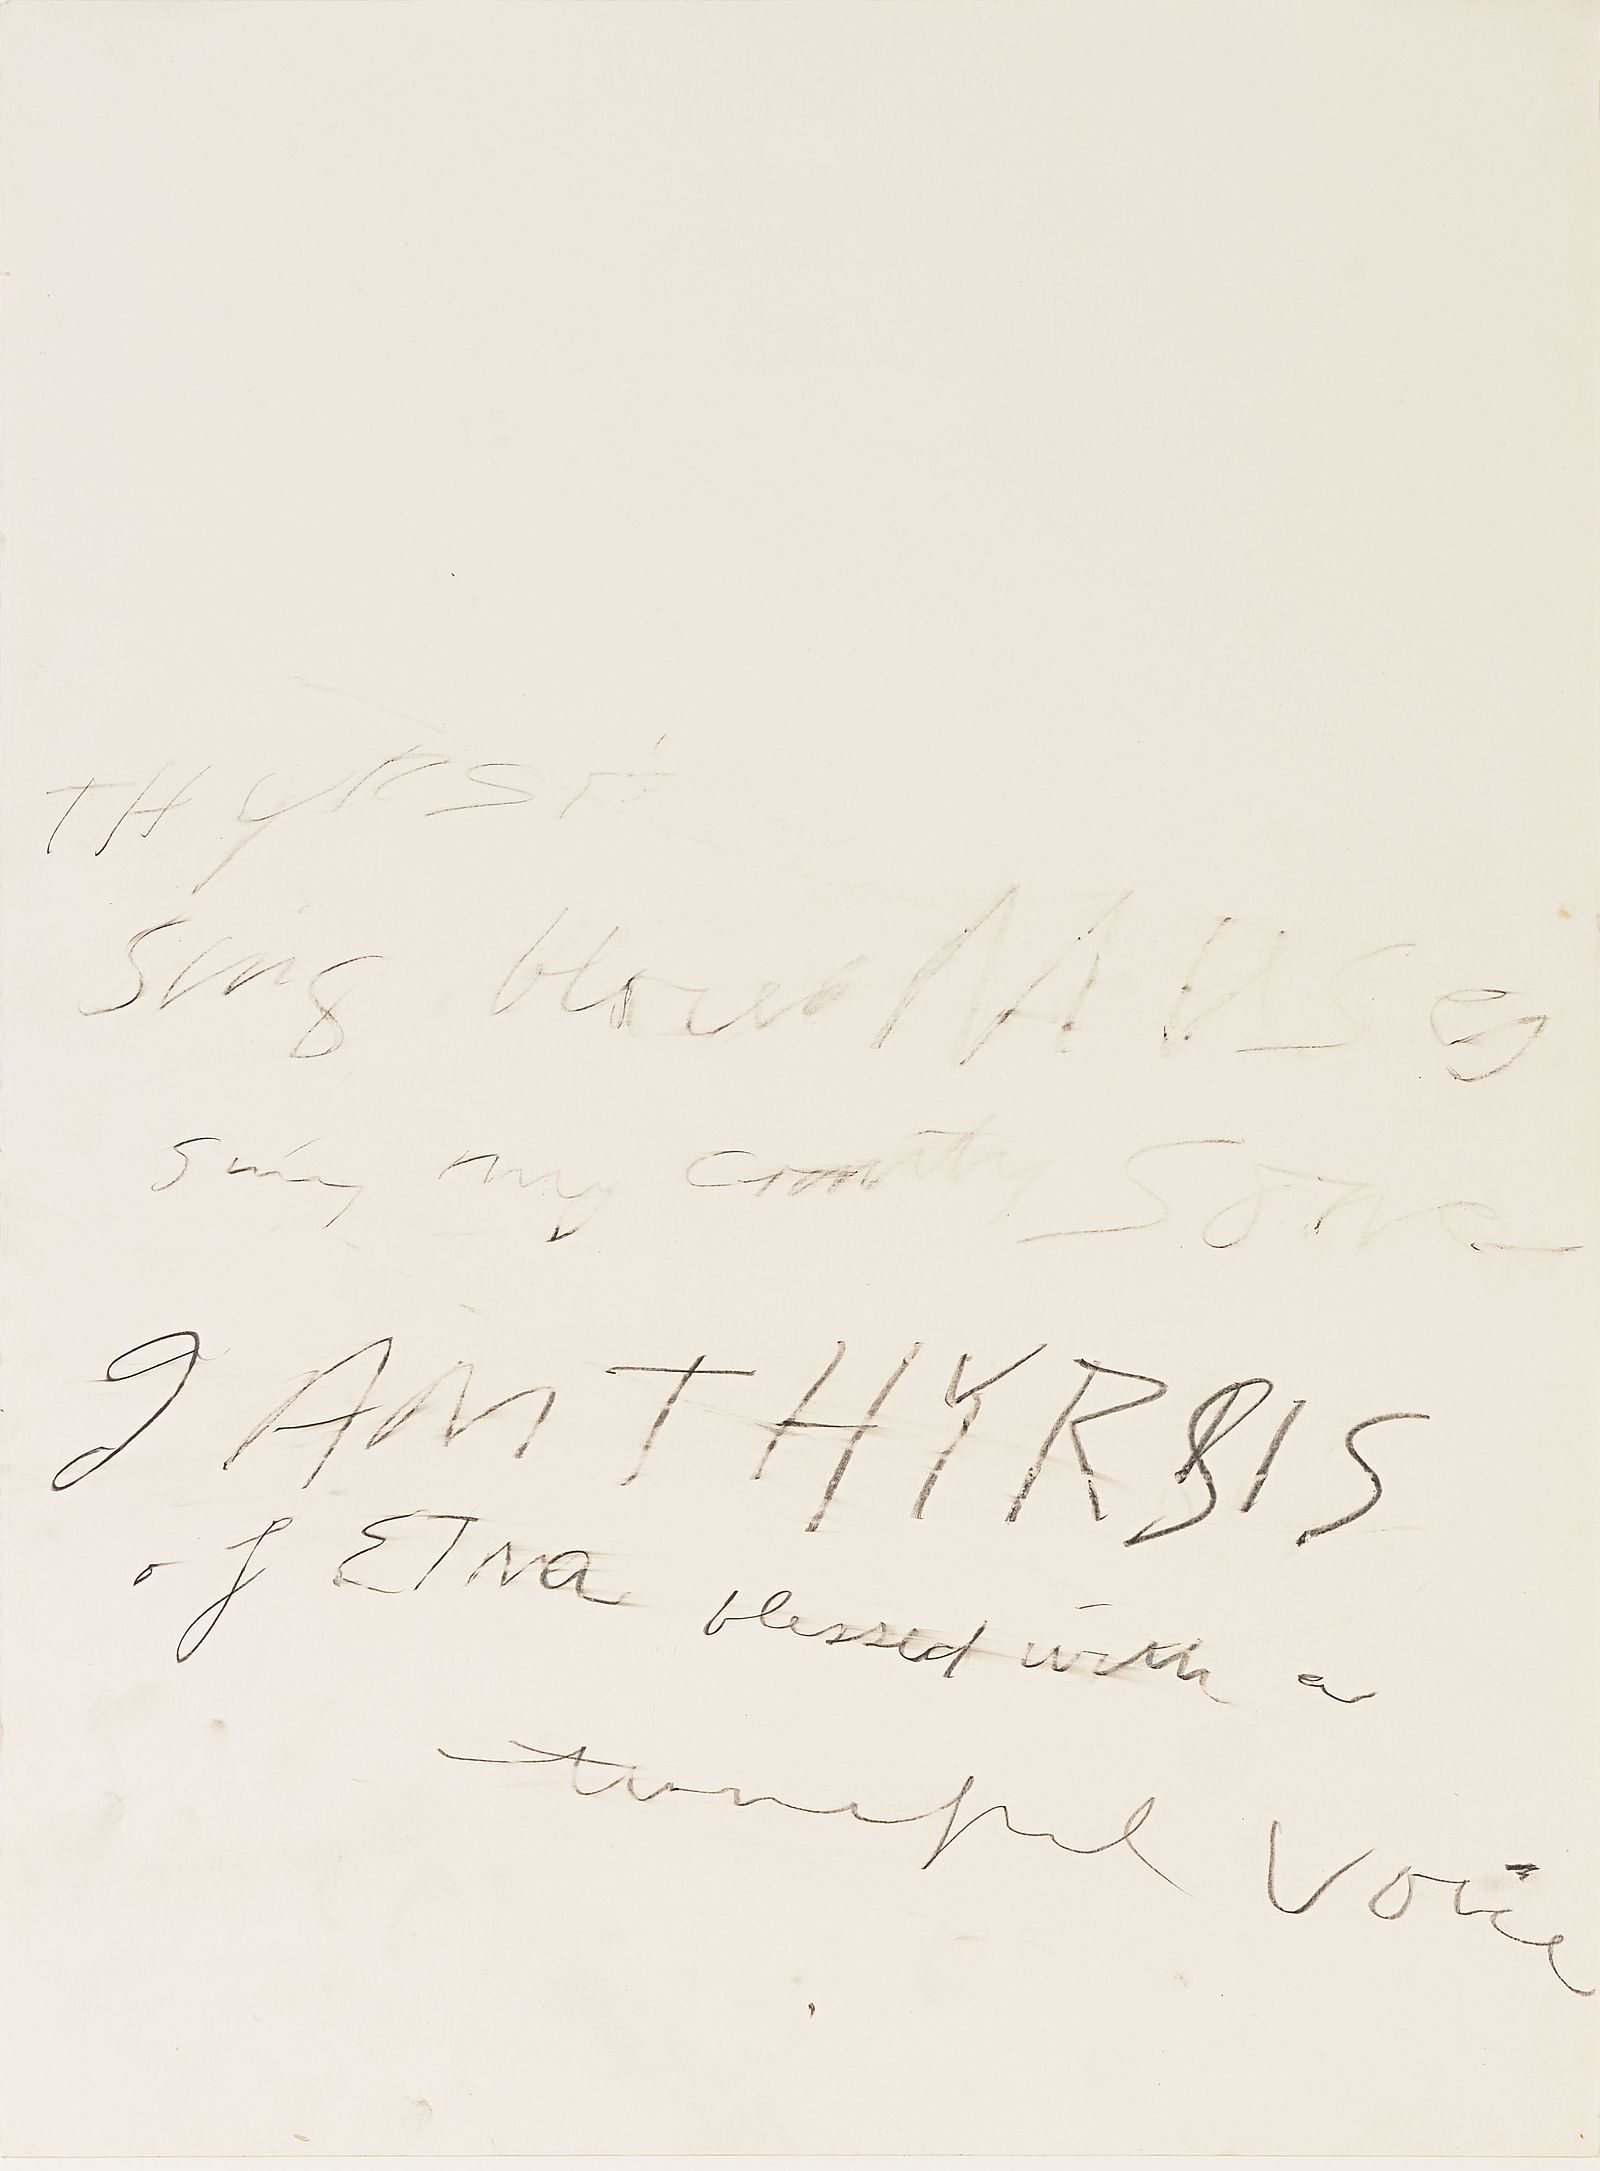 THYRSIS
Sing MUSes
sing my country Song
I AM THYRSIS
of ETNa blessed with a
tuneful Voice